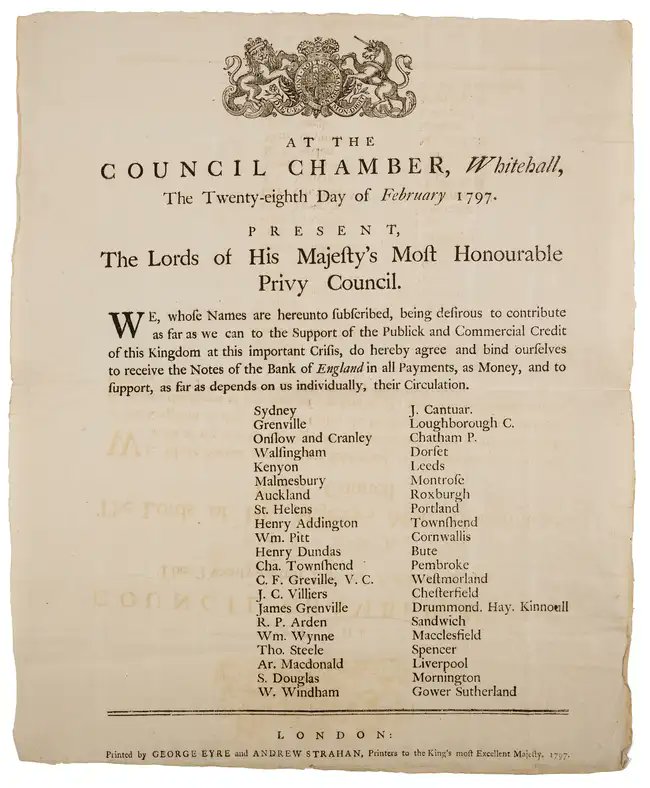 AT THE
COUNCIL CHAMBER, Whitehall,
The Twenty-eighth Day of February 1797.
PRESENT,
The Lords of His Majeſty's Moſt Honourable
Privy Council.
WE, whoſe Names are hereunto ſubſcribed, being deſirous to contribute
as far as we can to the Support of the Publick and Commercial Credit
of this Kingdom at this important Criſis, do hereby agree and bind ourſelves
to receive the Notes of the Bank of England in all Payments, as Money, and to
ſupport, as far as depends on us individually, their Circulation.
Sydney
Grenville
Onſlow and Cranley
Walſingham
Kenyon
Malmesbury
Auckland
St. Helens
Henry Addington
Wm. Pitt
Henry Dundas
Cha. Townſhend
C. F. Greville, V. C.
J. C. Villiers
James Grenville
R. P. Arden
Wm. Wynne
Tho. Steele
Ar. Macdonald
S. Douglas
W. Windham
J. Cantuar.
Loughborough C.
Chatham P.
Dorſet
Leeds
Montroſe
Roxburgh
Portland
Townſhend
Cornwallis
Bute
Pembroke
Weſtmorland
Cheſterfield
Drummond. Hay. Kinnoull
Sandwich
Macclesfield
Spencer
Liverpool
Mornington
Gower Sutherland
LONDON:
Printed by GEORGE EYRE and ANDREW STRAHAN, Printers to the King's moſt Excellent Majeſty. 1797.